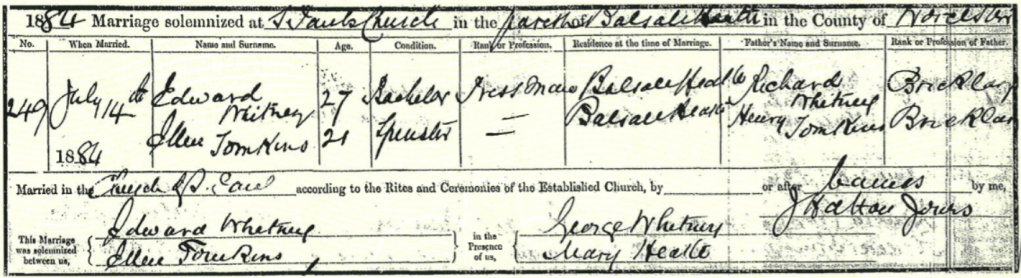 1884 Marriage solemnized at S Pauls Church in the parish of Balsall Heath in the County of Worcester
No. When Married. Name and Surname. Age. Condition. Rank or Profession. Residence at the time of Marriage. Father's Name and Surname. Rank or Profession of Father.
249 July 14th 1884 Edward Whitney 27 Bachelor Press Man Balsall Heath Richard Whitney Bricklayer
Ellen Tomkins 21 Spinster — Balsall Heath Henry Tomkins Bricklayer
Married in the Church of S. Paul according to the Rites and Ceremonies of the Established Church, by or after Banns by me,
J Hatton
This Marriage was solemnized between us, Edward Whitney Ellen Tomkins in the Presence of us, George Whitney Mary Heath